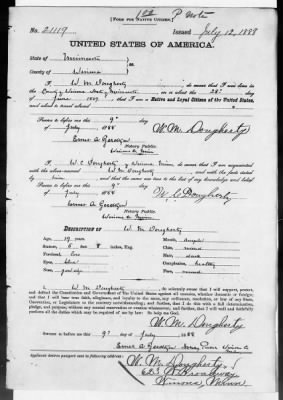 [FORM FOR NATIVE CITIZEN.]
No. 21119 Issued July 12, 1888
UNITED STATES OF AMERICA.
State of Minnesota
County of Winona
I, W M Dougherty, do swear that I was born in the
County of Winona State of Minnesota, on or about the 28th day
of June 1869, that I am a Native and Loyal Citizen of the United States,
and about to travel abroad
Sworn to before me this 9th day
of July 1888 W. M. Dougherty
Notary Public.
I, W C Dougherty of Winona Minn, do swear that I am acquainted
with the above-named W M Dougherty, and with the facts stated
by him, and that the same are true to the best of my knowledge and belief.
Sworn to before me this 9th day
of July 1888 W C Dougherty
Notary Public.
DESCRIPTION OF W M Dougherty
Age, 19 years.
Stature, 5 feet 8 inches, Eng.
Forehead, low
Eyes, blue
Nose, good size
Mouth,
Chin, round
Hair, dark
Complexion, healthy
Face, round
I, W M Dougherty, do solemnly swear that I will support, protect,
and defend the Constitution and Government of the United States against all enemies, whether domestic or foreign;
and that I will bear true faith, allegiance, and loyalty to the same, any ordinance, resolution, or law of any State,
Convention, or Legislature to the contrary notwithstanding; and further, that I do this with a full determination,
pledge, and purpose, without any mental reservation or evasion whatsoever; and further, that I will well and faithfully
perform all the duties which may be required of me by law: So help me God.
W. M. Dougherty
Sworn to before me this 9th day of July 1888
Applicant desires passport sent to following address:
W. M. Dougherty
Winona, Minn